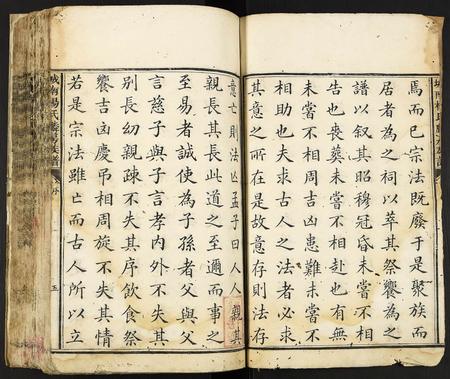 焉而已宗法既廢于是聚族而
居者為之祠以萃其祭饗為之
譜以敘其昭穆冠昏未嘗不相
告也喪葬未嘗不相赴也有無
未嘗不相周吉凶患難未嘗不
相助也夫求古人之法者必求
其意之所在是故意存則法存
意亡則法亡孟子曰人人親其
親長其長此道之至邇而事之
至易者誠使為子孫者父與父
言慈子與子言孝內外不失其
別長幼親疎不失其序飲食祭
饗吉凶慶弔相周旋不失其情
若是宗法雖亡而古人所以立
序
五